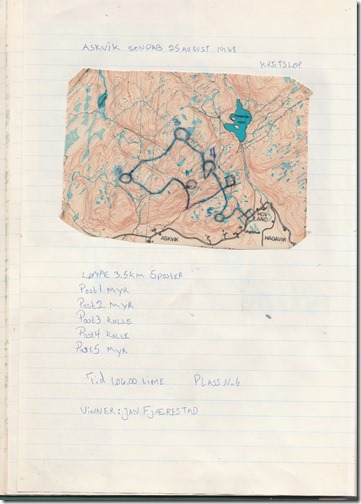 ASKVIK SØNDAG 25 AUGUST 1968
KRETSLØP
HOVLAND
ASKVIK
HAGAVIK
LØYPE 3.5KM 5 poster
Post 1 MYR
Post 2 MYR
Post 3 KOLLE
Post 4 KOLLE
Post 5 MYR
Tid 1.06.00 TIME PLASS NR 6
VINNER: JAN FJÆRESTAD